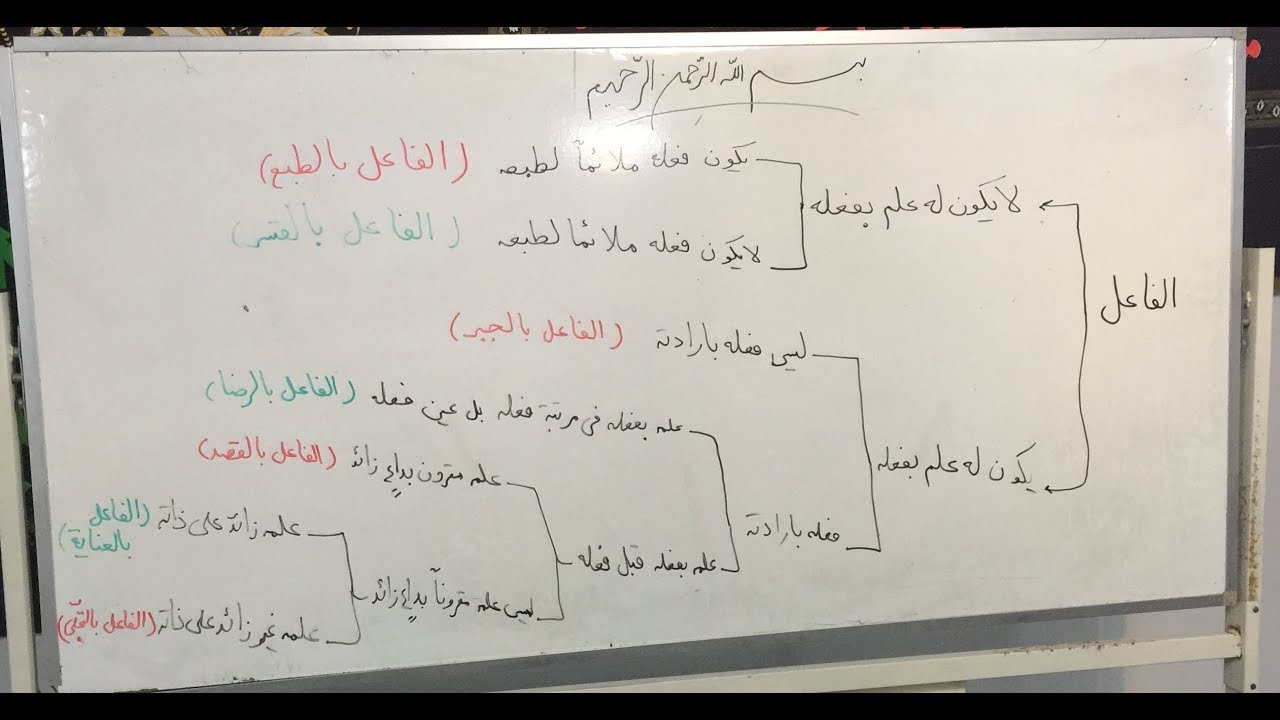 بسم الله الرّحمن الرّحيم
الفاعل
لا يكون له علم بفعله
يكون فعله ملائماً لطبعه (الفاعل بالطبع)
لا يكون فعله ملائما لطبعه (الفاعل بالقسر)
يكون له علم بفعله
ليس فعله بارادته (الفاعل بالجبر)
فعله بارادته
علمه بفعله فى مرتبة فعله بل عين فعله (الفاعل بالرضا)
علمه بفعله قبل فعله
علمه مقرون بداعٍ زائد (الفاعل بالقصد)
ليس علمه مقروناً بداعٍ زائد
علمه زائد على ذاته (الفاعل
بالعناية)
علمه غير زائد على ذاته (الفاعل بالتجلّي)